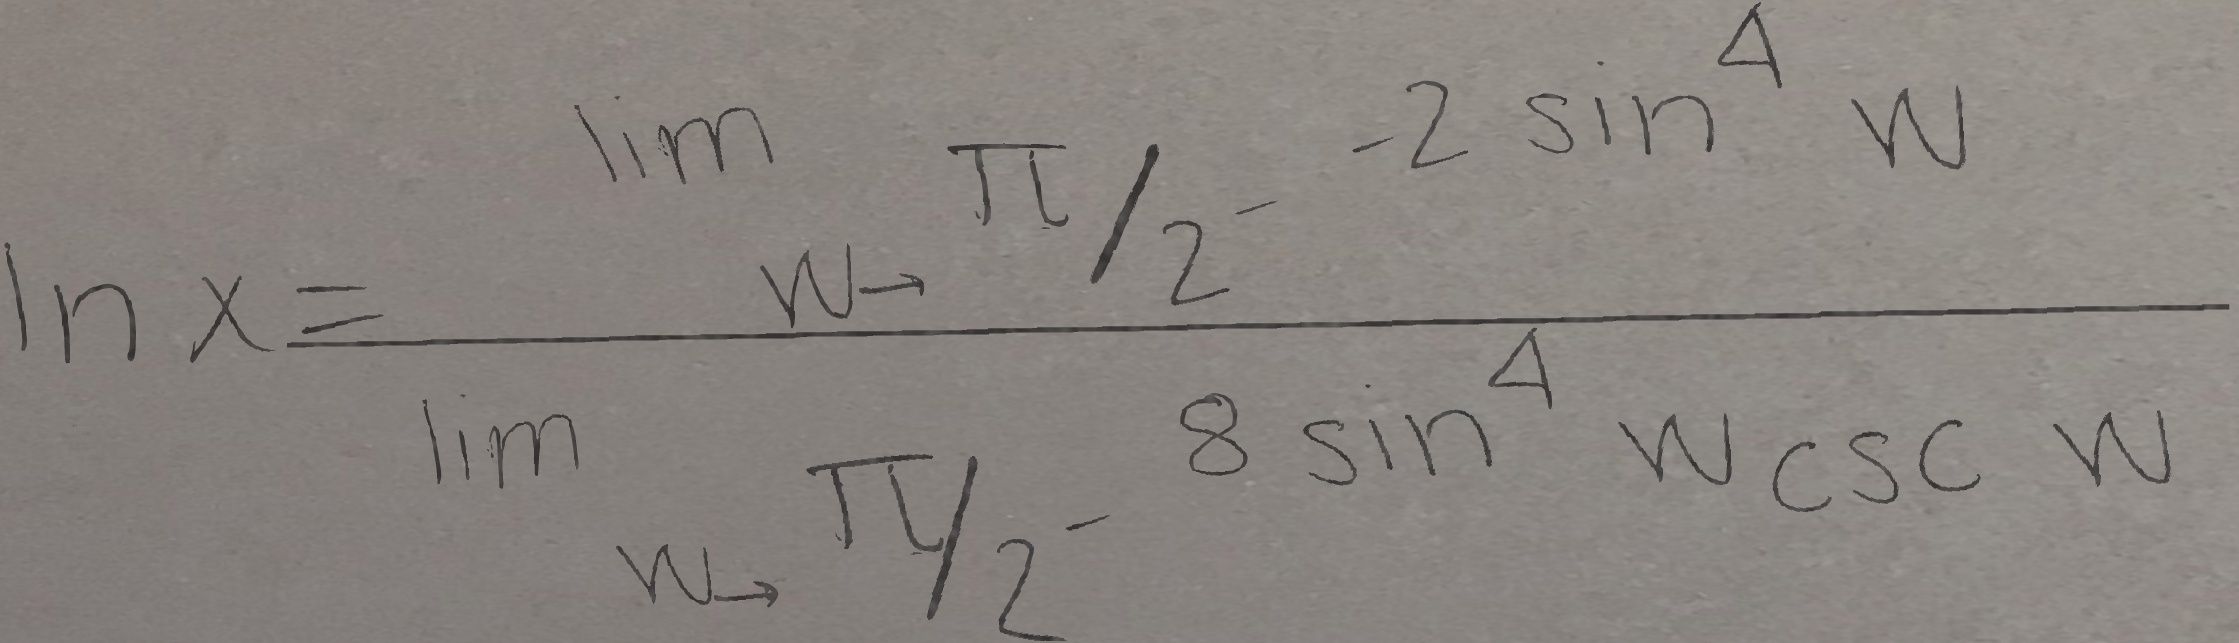 ln x = \frac{\lim_{w \to \pi/2^-} -2 \sin^4 w}{\lim_{w \to \pi/2^-} 8 \sin^4 w \csc w}